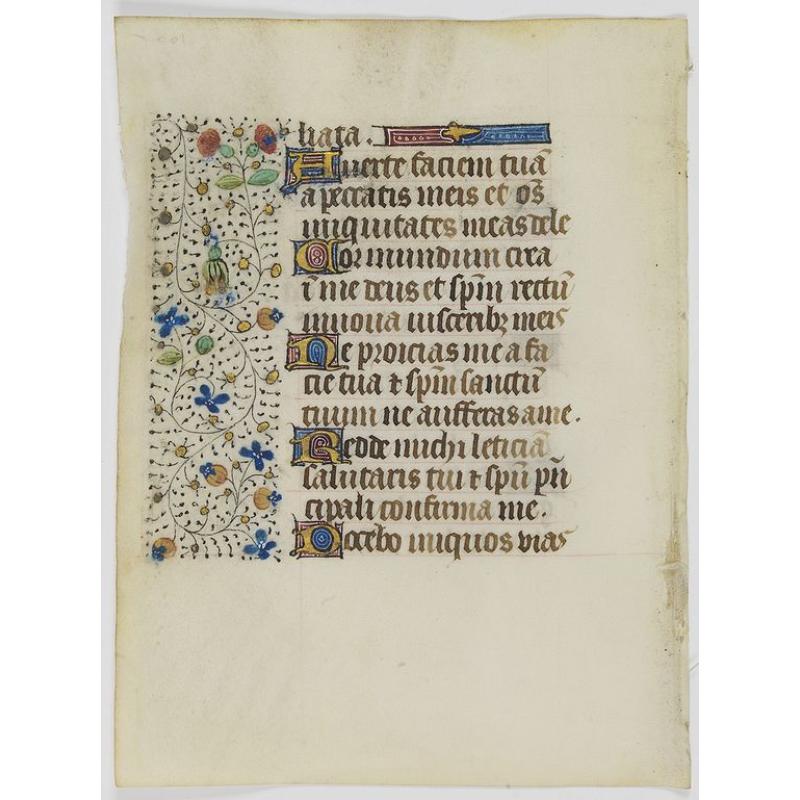 liata.
Auerte faciem tuā
a peccatis meis et oēs
iniquitates meas dele
Cor mundum crea
ī me deus et spm̄ rectū
innoua uisceribꝫ meis
Ne proicias me a fa
cie tua ⁊ spm̄ sanctū
tuum ne aufferas a me.
Redde michi leticiā
salutaris tui ⁊ spū prī
cipali confirma me.
Docebo iniquos vias